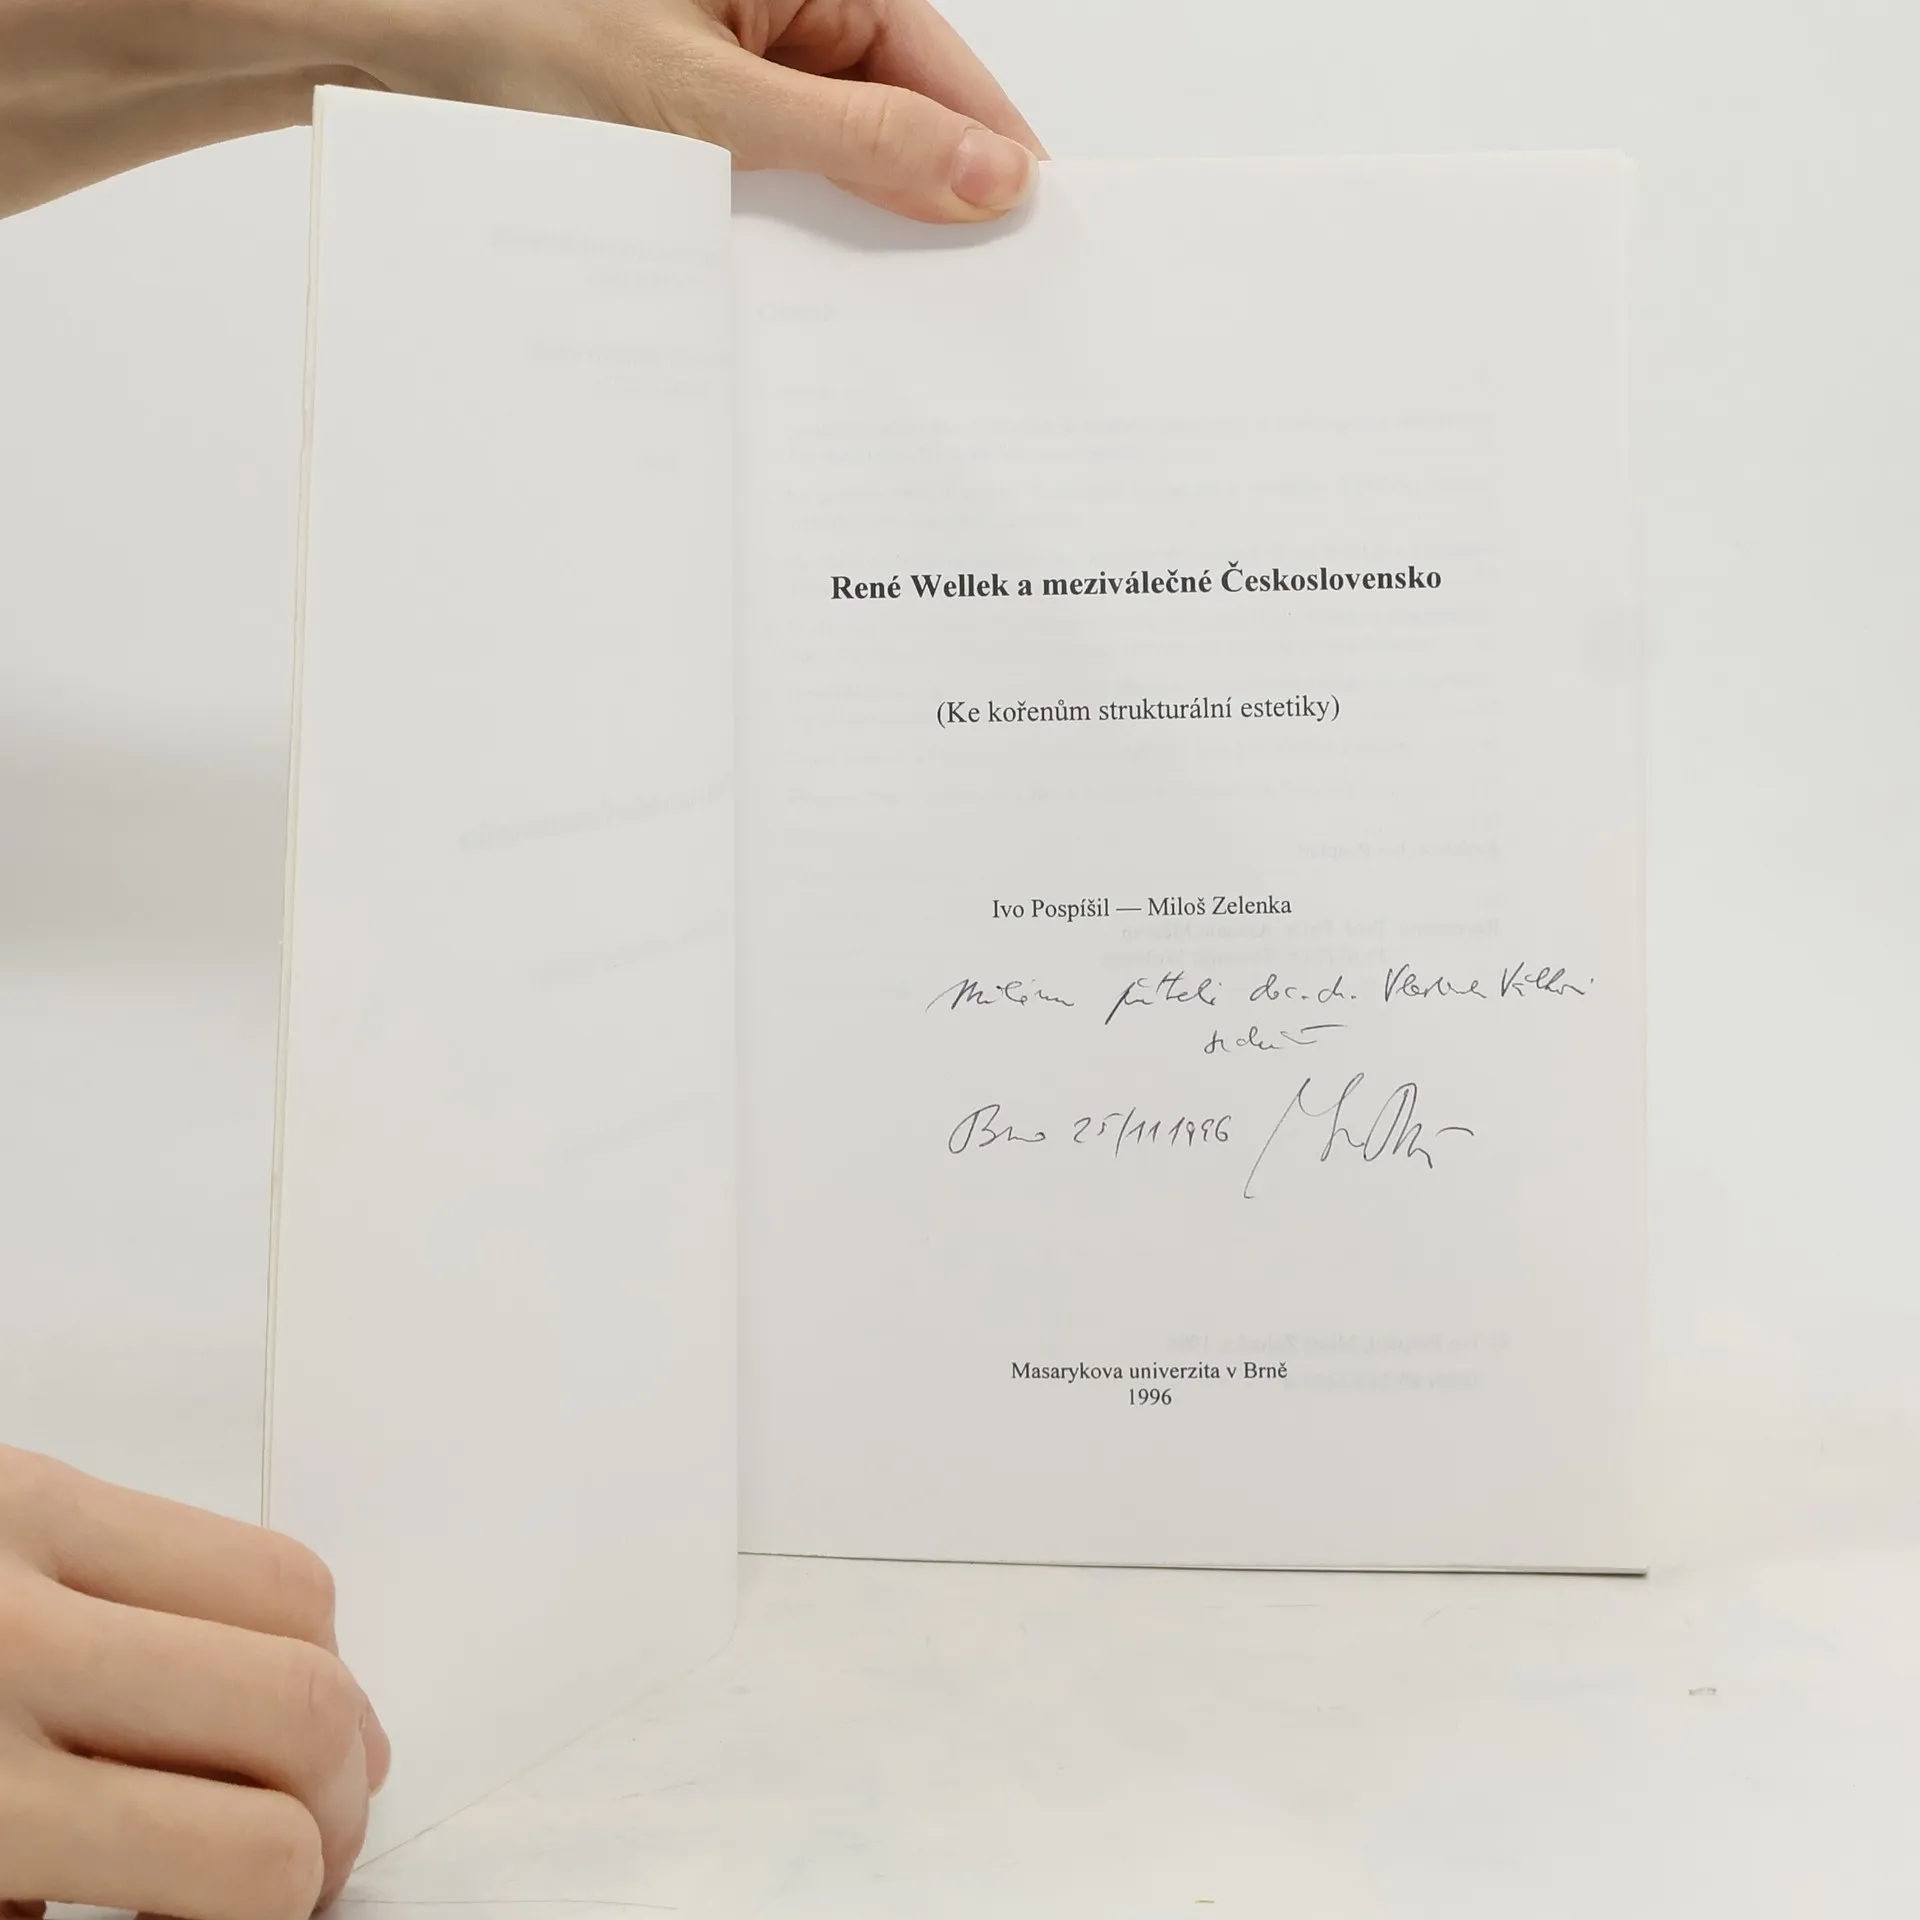 René Wellek a meziválečné Československo
(Ke kořenům strukturální estetiky)
Ivo Pospíšil — Miloš Zelenka
Milému příteli doc. dr.
srdečně
Brno 25/11 1996
Masarykova univerzita v Brně
1996